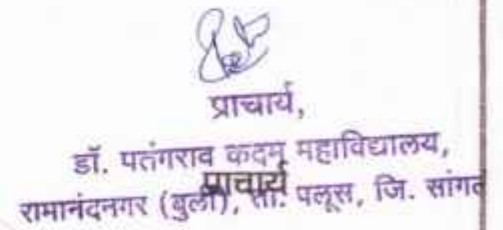 प्राचार्य,
डॉ. पतंगराव कदम महाविद्यालय,
प्राचार्य
रामानंदनगर (बुर्ली), ता. पलूस, जि. सांगली